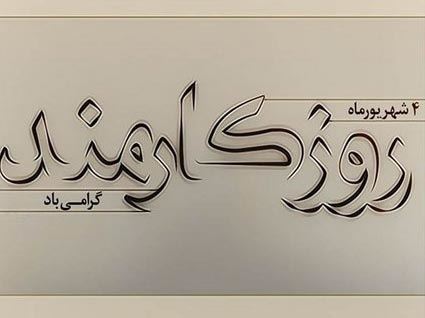 ۴ شهریورماه
روز کارمند
گرامی باد